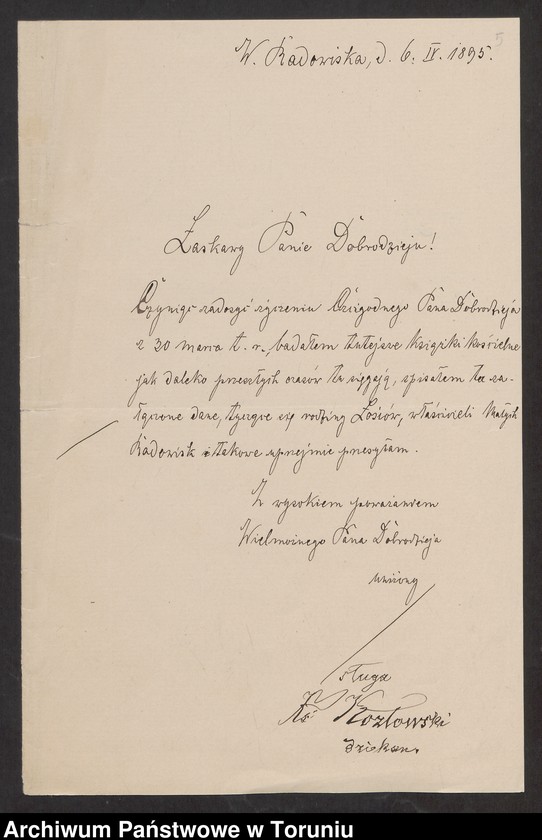 5
W. Radowiska, d. 6. IV. 1895.
Łaskawy Panie Dobrodzieju!
Czyniąc zadosyć życzeniu Czcigodnego Pana Dobrodzieja
z 30 marca t. r., badałem tutejsze książki kościelne
jak daleko przeszłych czasów tu sięgają, spisałem tu za-
łączone dane, tyczące się rodziny Łosiów, właścicieli Małych
Radowisk i takowe uprzejmie przesyłam.
Z wysokiem poważaniem
Wielmożnego Pana Dobrodzieja
uniżony
sługa
Ks. Kozłowski
dziekan.
Archiwum Państwowe w Toruniu